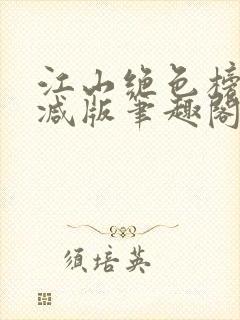 江山绝色榜
减版笔趣阁
须培英